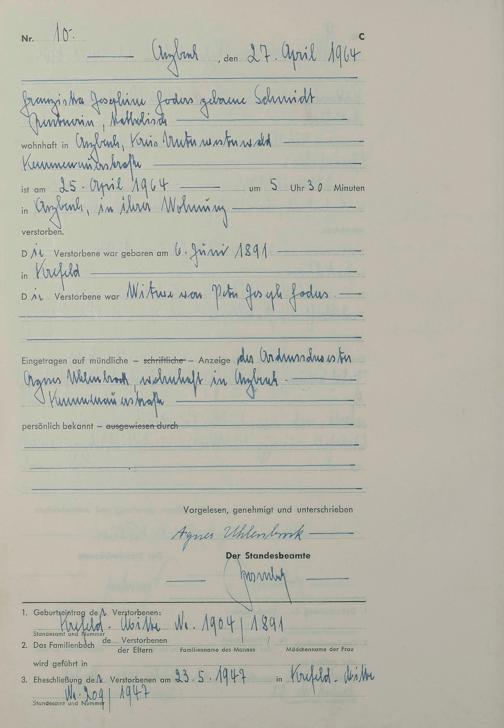 Nr. 10. C
Arzbach, den 27. April 1964
Franziska Josephine Goders geborene Schmidt
Rentnerin, katholisch
wohnhaft in Arzbach, Kreis Unterwesterwald
Kemmenauerstraße
ist am 25. April 1964 um 5 Uhr 30 Minuten
in Arzbach, in ihrer Wohnung
verstorben.
Die Verstorbene war geboren am 6. Juni 1891
in Krefeld
Die Verstorbene war Witwe von Peter Joseph Goders.
Eingetragen auf mündliche – schriftliche – Anzeige der Ordensschwester
Agnes Uhlenbrock, wohnhaft in Arzbach.
Kemmenauerstraße
persönlich bekannt – ausgewiesen durch
Vorgelesen, genehmigt und unterschrieben
Agnes Uhlenbrock
Der Standesbeamte
1. Geburtseintrag der Verstorbenen:
Krefeld-Mitte Nr. 1904/1891
Standesamt und Nummer
2. Das Familienbuch de Verstorbenen
der Eltern Familienname des Mannes Mädchenname der Frau
wird geführt in
3. Eheschließung der Verstorbenen am 23.5.1947 in Krefeld-Mitte
Nr. 209/1947
Standesamt und Nummer